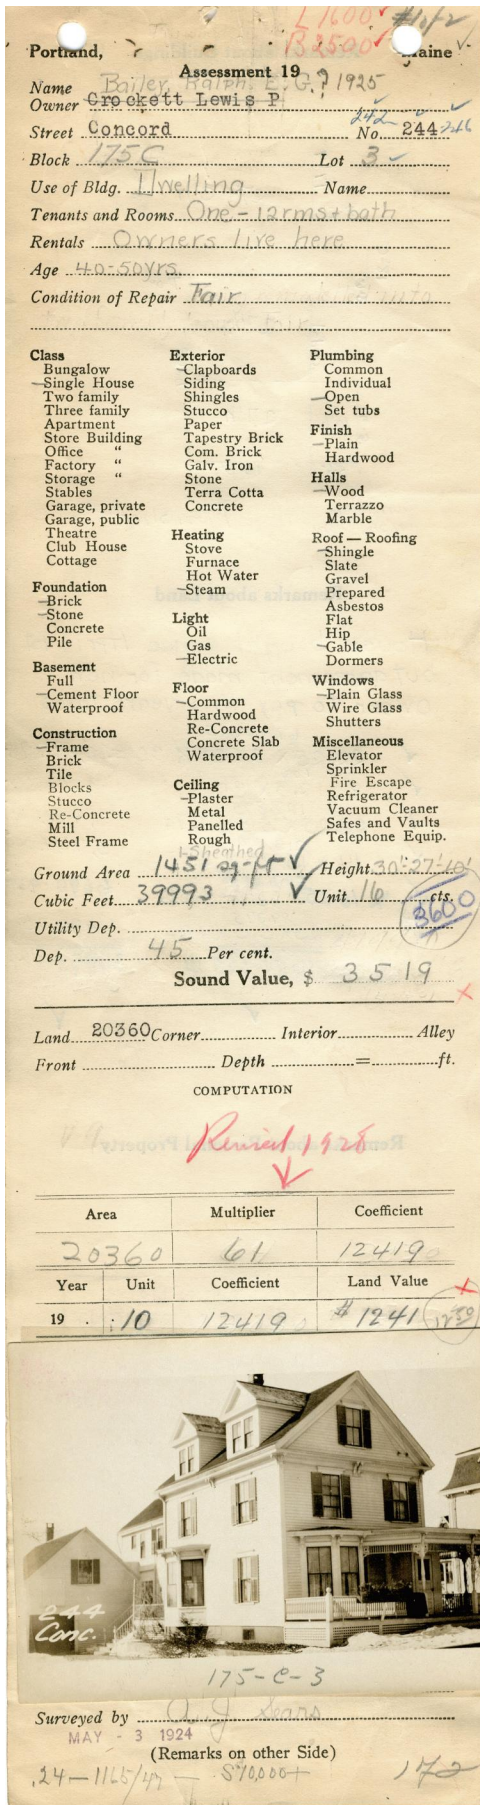 L 1600 #1 of 2
B 2500
Portland, Maine
Assessment 19
Name Bailey, Ralph E. G. ? 1925
Owner Crockett Lewis P.
Street Concord No. 242 244 246
Block 175C Lot 3
Use of Bldg. Dwelling Name
Tenants and Rooms One - 12 rms + bath
Rentals Owners live here
Age 40-50yrs.
Condition of Repair Fair
Class
Bungalow
Single House
Two family
Three family
Apartment
Store Building
Office "
Factory "
Storage "
Stables
Garage, private
Garage, public
Theatre
Club House
Cottage
Foundation
Brick
Stone
Concrete
Pile
Basement
Full
Cement Floor
Waterproof
Construction
Frame
Brick
Tile
Blocks
Stucco
Re-Concrete
Mill
Steel Frame
Exterior
Clapboards
Siding
Shingles
Stucco
Paper
Tapestry Brick
Com. Brick
Galv. Iron
Stone
Terra Cotta
Concrete
Heating
Stove
Furnace
Hot Water
Steam
Light
Oil
Gas
Electric
Floor
Common
Hardwood
Re-Concrete
Concrete Slab
Waterproof
Ceiling
Plaster
Metal
Panelled
Rough
1-Sheathed
Plumbing
Common
Individual
Open
Set tubs
Finish
Plain
Hardwood
Halls
Wood
Terrazzo
Marble
Roof — Roofing
Shingle
Slate
Gravel
Prepared
Asbestos
Flat
Hip
Gable
Dormers
Windows
Plain Glass
Wire Glass
Shutters
Miscellaneous
Elevator
Sprinkler
Fire Escape
Refrigerator
Vacuum Cleaner
Safes and Vaults
Telephone Equip.
Ground Area 1451 sq-ft Height 30'-27'-10'
Cubic Feet 39993 Unit 16 cts.
3600
Utility Dep.
Dep. 45 Per cent.
Sound Value, $ 3519
Land 20360 Corner Interior Alley
Front Depth = ft.
COMPUTATION
Revised 1928
Area Multiplier Coefficient
20360 61 124190
Year Unit Coefficient Land Value
19 . .10 124190 # 1241 1250
244
Conc.
175-C-3
Surveyed by A. J. Sears
MAY - 3 1924
(Remarks on other Side)
.24-1165/47 - $70,000+ 172